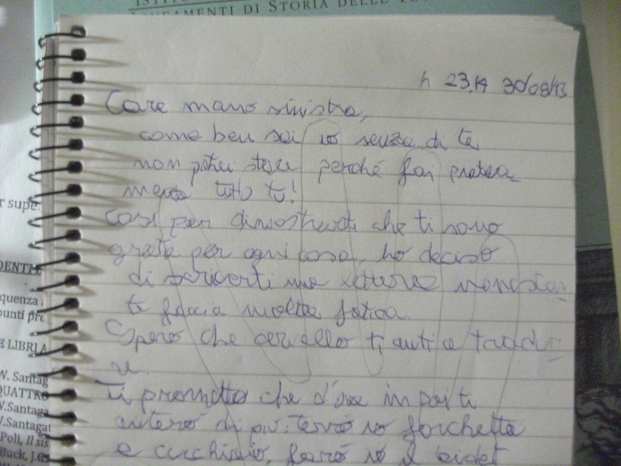 LINEAMENTI DI STORIA DELLE
h 23,19 30/08/13
Cara mano sinistra,
come ben sai io senza di te
non potrei stare perché fai pratica-
mente tutto tu!
Così per dimostrarti che ti sono
grata per ogni cosa, ho deciso
di scriverti una lettera nonostan-
te faccia molta fatica.
Spero che cervello ti aiuti a tradur-
re
Ti prometto che d'ora in poi ti
aiuterò di più: terrò io forchetta
e cucchiaio, farò io il bidet
r supe
DENTI
quenza
punti pre
E LIBRI A
W. Santag
QUATTRO
W.Santaga
W.Santagat
Poli, Il sis
Buck, J.G